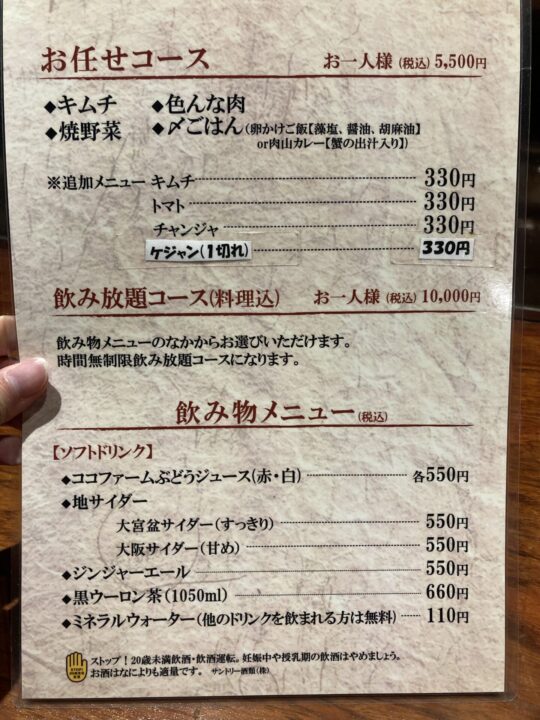 お任せコース お一人様(税込)5,500円
◆キムチ ◆色んな肉
◆焼野菜 ◆〆ごはん(卵かけご飯【藻塩、醤油、胡麻油】
or肉山カレー【蟹の出汁入り】)
※追加メニュー キムチ 330円
トマト 330円
チャンジャ 330円
ケジャン(1切れ) 330円
飲み放題コース(料理込) お一人様(税込)10,000円
飲み物メニューのなかからお選びいただけます。
時間無制限飲み放題コースになります。
飲み物メニュー(税込)
【ソフトドリンク】
◆ココファームぶどうジュース(赤・白) 各550円
◆地サイダー
大宮盆サイダー(すっきり) 550円
大阪サイダー(甘め) 550円
◆ジンジャーエール 550円
◆黒ウーロン茶(1050ml) 660円
◆ミネラルウォーター(他のドリンクを飲まれる方は無料) 110円
ストップ!20歳未満飲酒・飲酒運転。妊娠中や授乳期の飲酒はやめましょう。
お酒はなによりも適量です。 サントリー酒類(株)